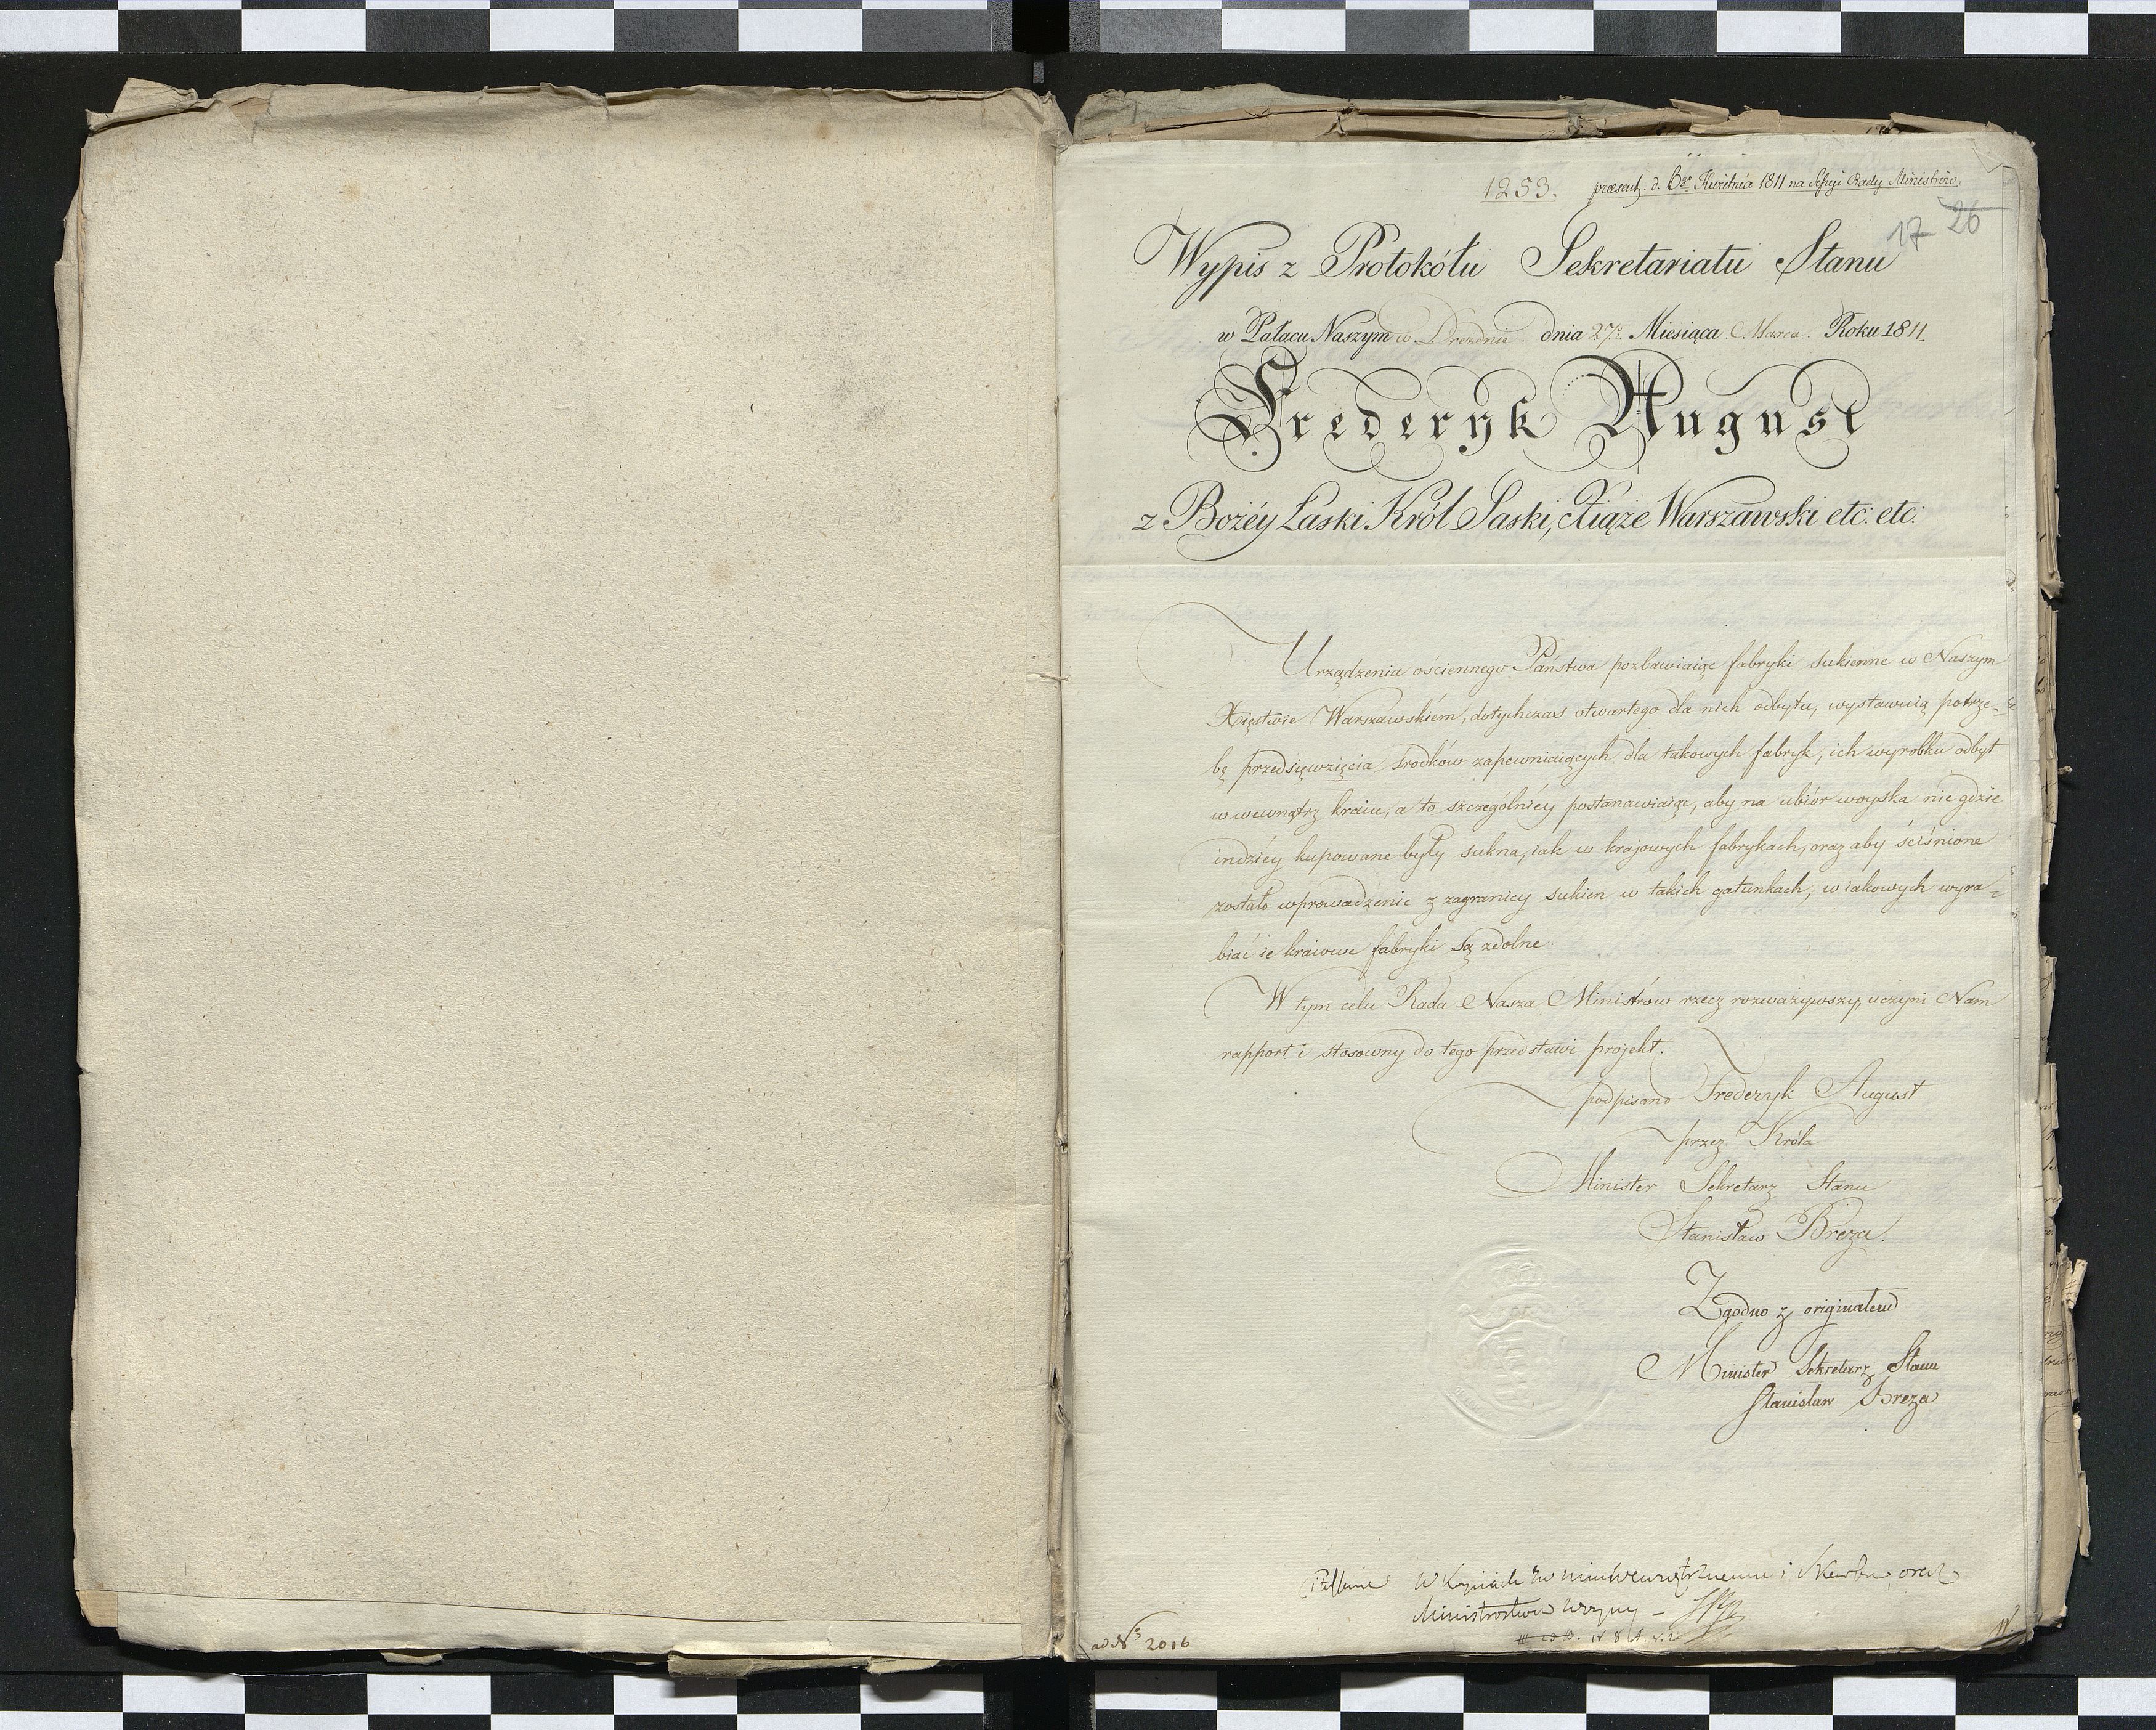 1253. præsent. d. 6go Kwietnia 1811 na Sessyi Rady Ministrów.
17 26
Wypis z Protokółu Sekretariatu Stanu
w Pałacu Naszym w Dreznie. dnia 27. Miesiąca Marca. Roku 1811.
Frederyk August
z Bożéy Łaski Król Saski, Xiąże Warszawski etc: etc:
Urządzenia ościennego Państwa pozbawiaiąc fabryki sukienne w Naszym
Xięstwie Warszawskiém, dotychczas otwartego dla nich odbytu, wystawuią potrze-
bę przedsięwzięcia srodków zapewniaiących dla takowych fabryk, ich wyrobku odbyt
w wewnątrz kraiu, a to szczególniéy postanawiaiąc, aby na ubiór woyska nie gdzie
indziéy kupowane były sukna, iak w krajowych fabrykach, oraz aby ściśnione
zostało wprowadzenie z zagranicy sukien w takich gatunkach, w iakowych wyra-
biać ie kraiowe fabryki są zdolne.
W tym celu Rada Nasza Ministrów rzecz rozważywszy, uczyni Nam
rapport i stosowny do tego przedstawi projekt.
podpisano Frederyk August
przez Króla
Minister Sekretarz Stanu
Stanisław Breza.
Zgodno z originałem
Minister Sekretarz Stanu
Stanisław Breza
w kopiach i Skarbu, oraz
Ministrostwu Woyny –
ad N 2016